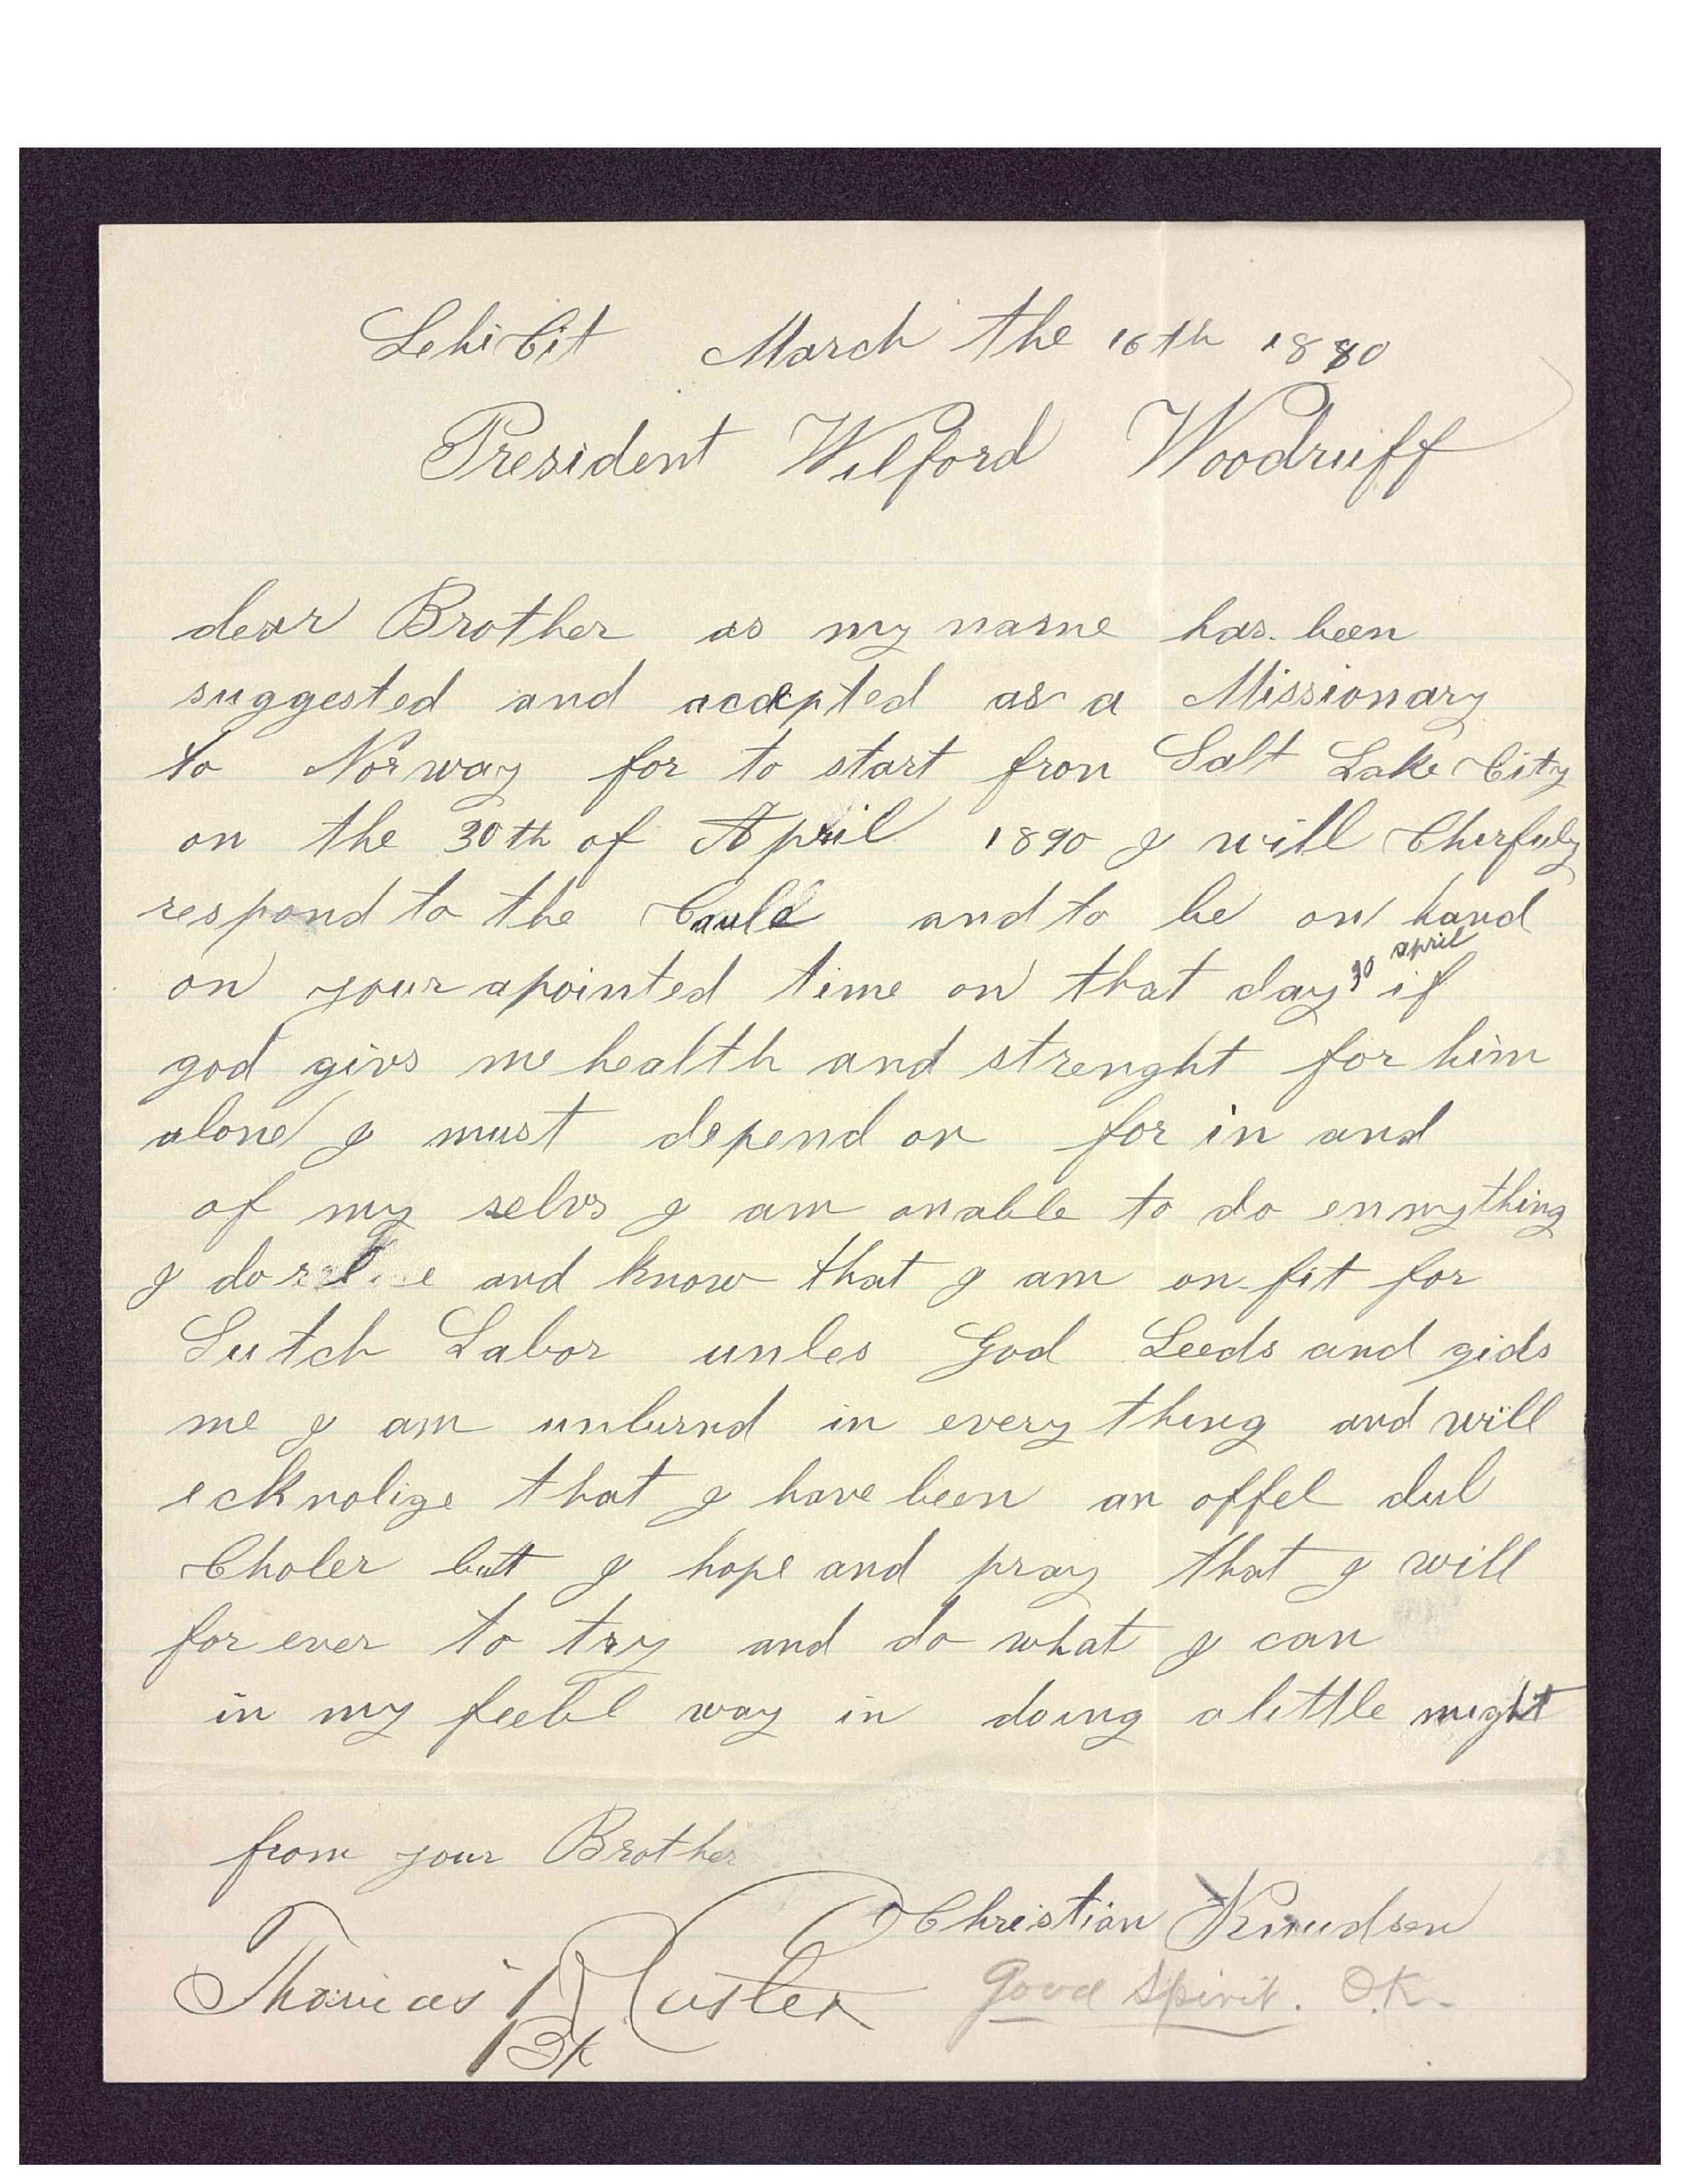 Lehi Cit March the 16th 1880
President Wilford Woodruff
dear Brother as my name has been
suggested and accepted as a Missionary
to Norway for to start fron Salt Lake City
on the 30th of April 1890 I will Cherfuly
respond to the Caule and to be on hand
on your apointed time on that day 30 april if
god givs me health and strenght for him
alone I must depend on for in and
of my selvs I am onable to do ennything
I do and know that I am on fit for
Sutch Labor unles God Leeds and gids
me I am unlurnd in every thing and will
ecknolige that I have been an offel dul
Choler but I hope and pray that I will
for ever to try and do what I can
in my feebl way in doing a little might
from your Brother
Christian Knudsen
Thomas R Cutler
Good Spirit. O.K.